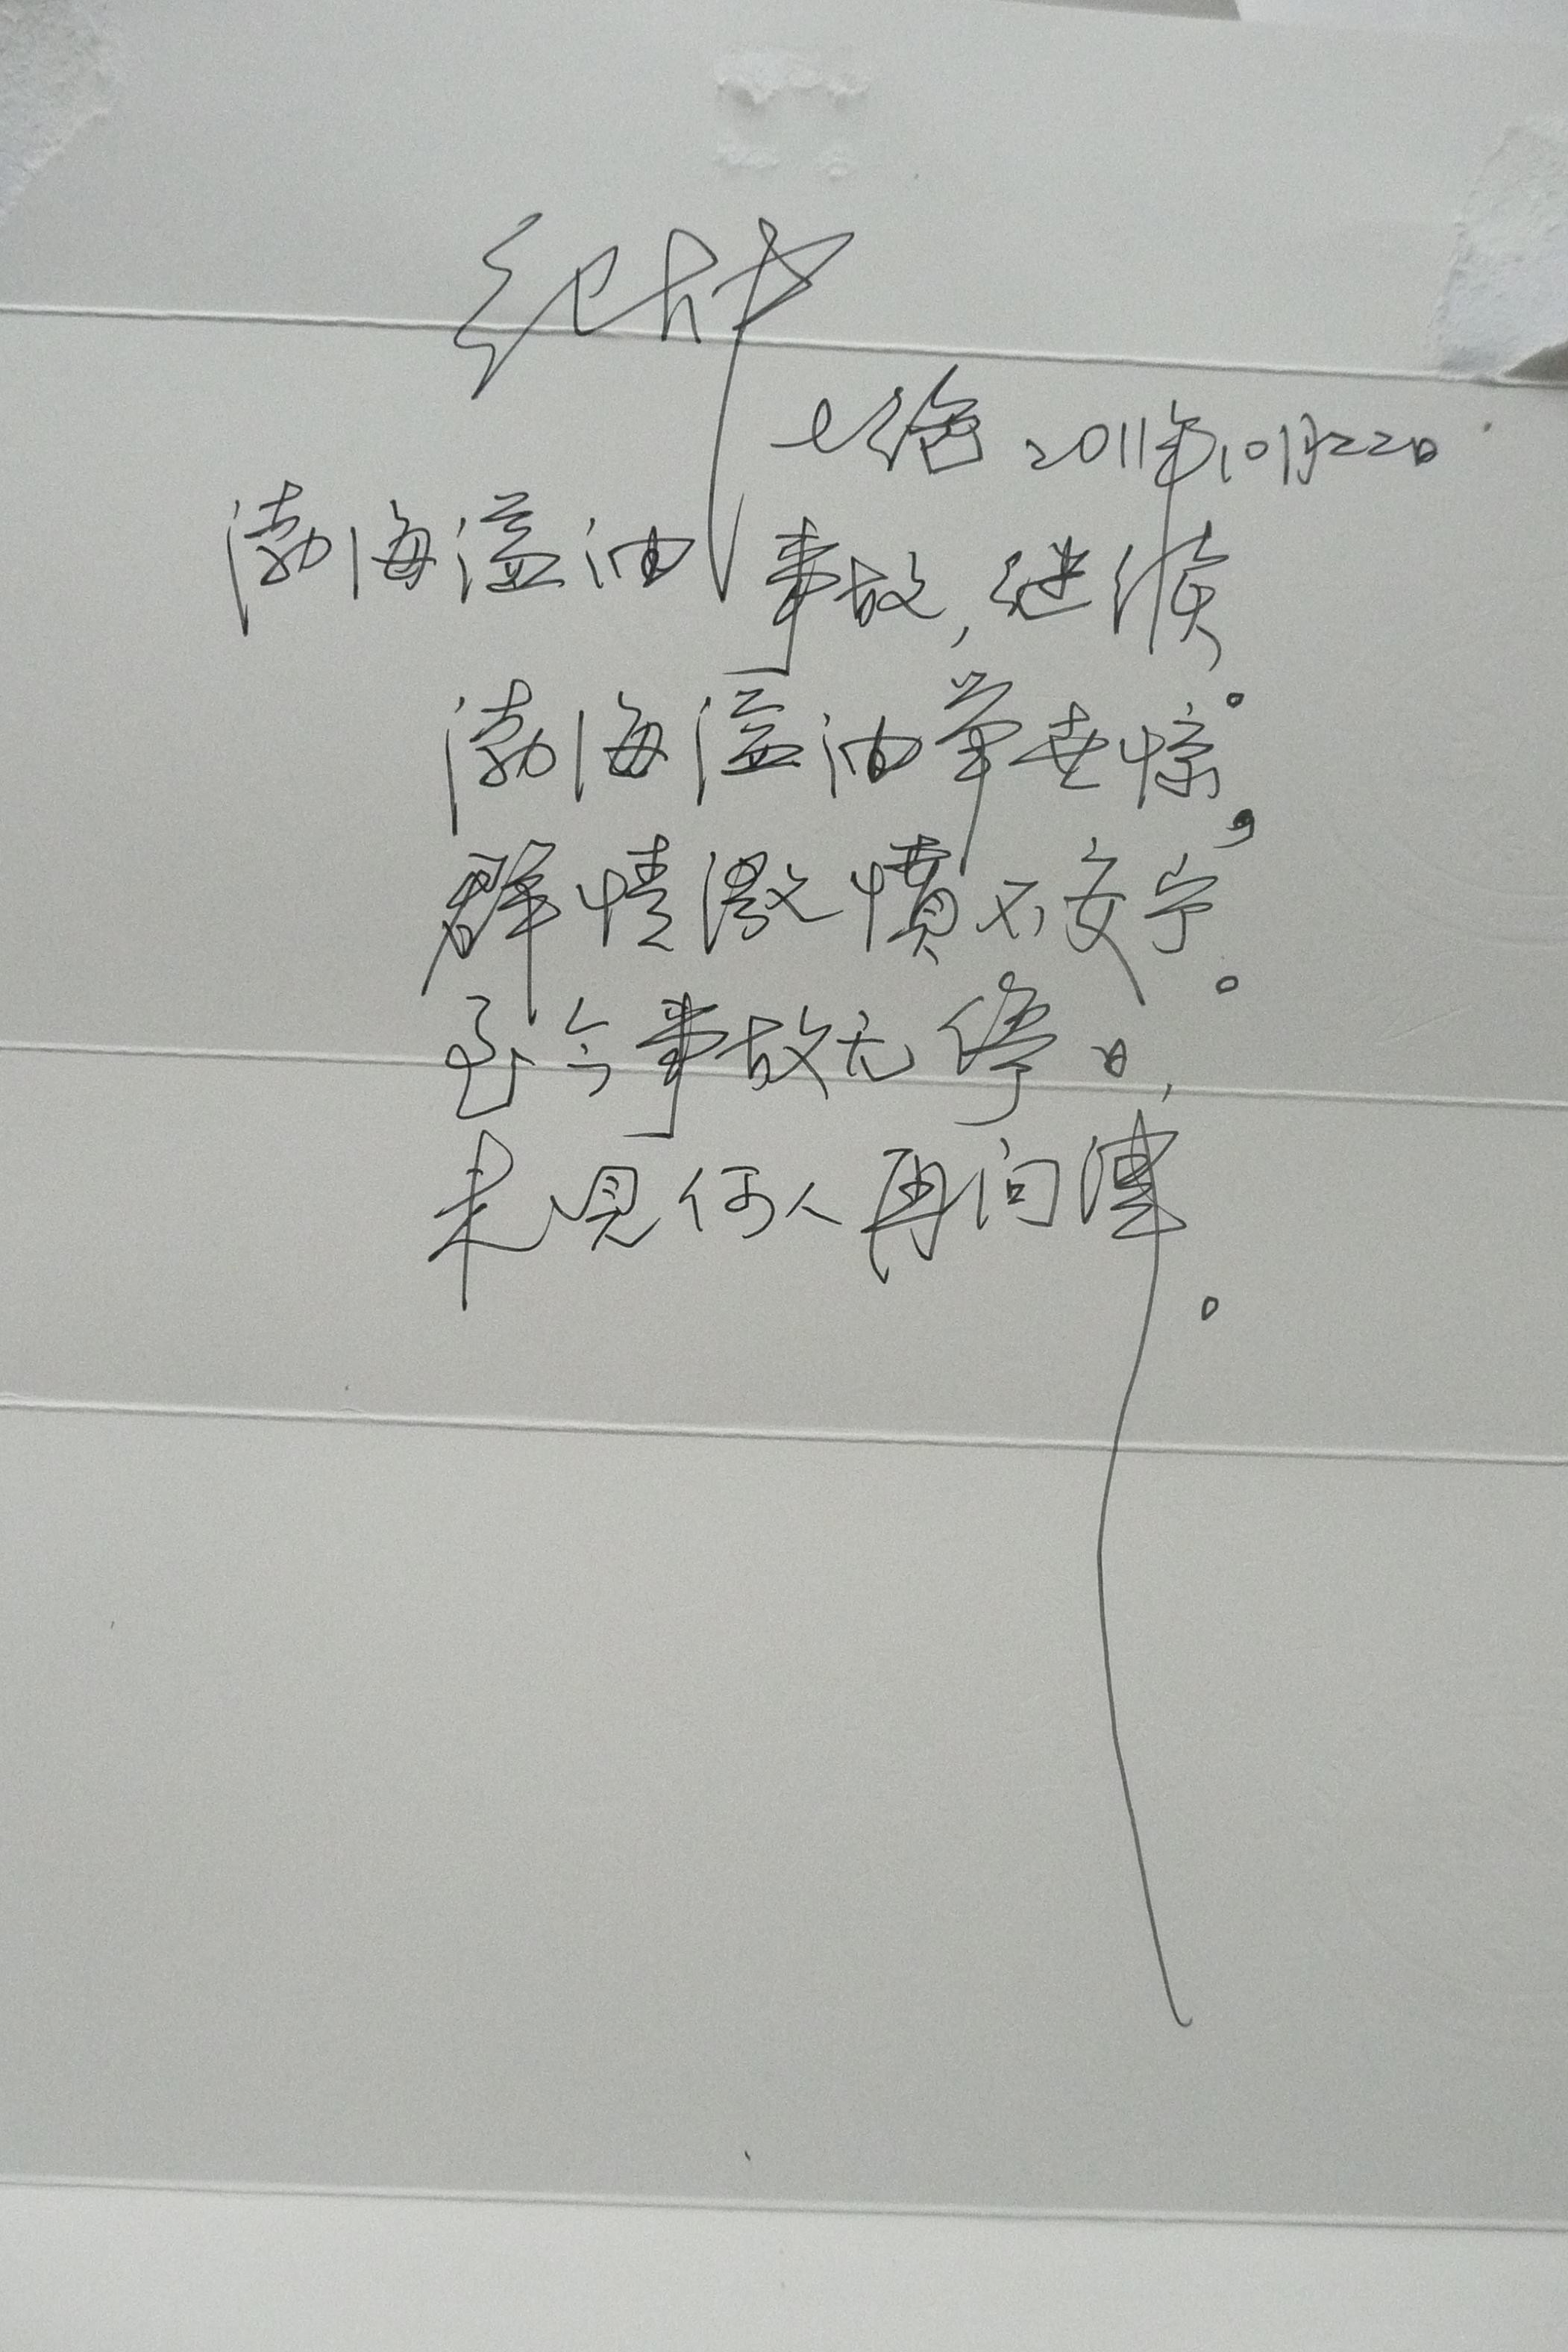 纪故
七绝 2011年10月22日
渤海溢油事故,继续。
渤海溢油举世惊,
群情激愤不安宁。
至今事故无停日,
未见何人再问津。